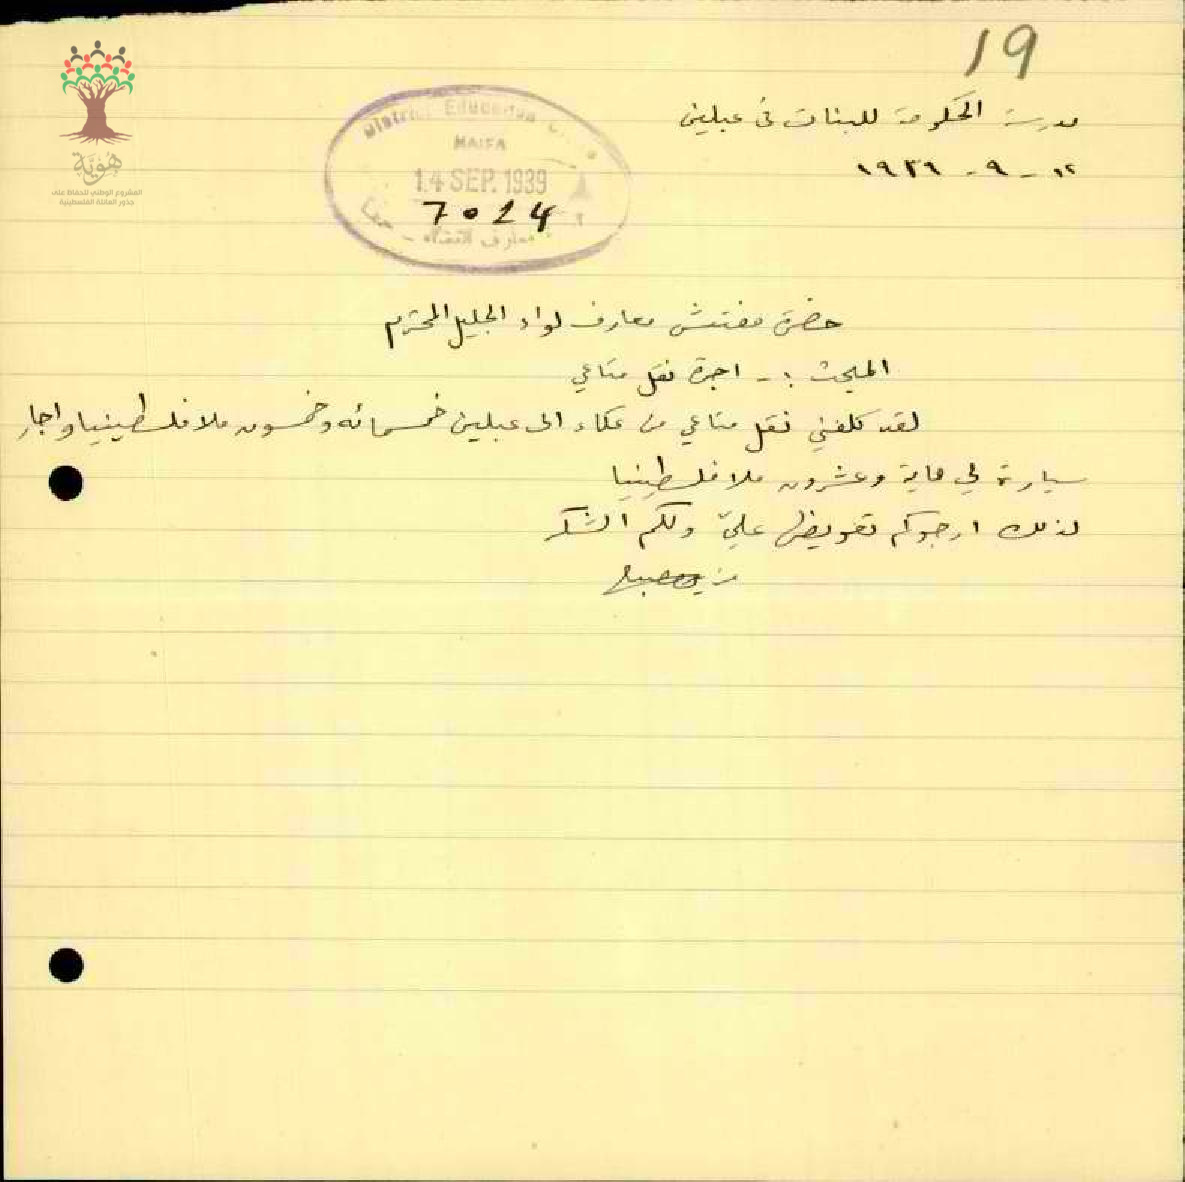 19
مدرسة الحكومة للبنات في عبلين
١٢ - ٩ - ١٩٣٩
District Education
HAIFA
14 SEP. 1939
7024
معارف القضاء - حيفا
هُوِيَّة
المشروع الوطني للحفاظ على
جذور العائلة الفلسطينية
حضرة مفتش معارف لواء الجليل المحترم
المبحث :- اجرة نقل متاعي
لقد كلفني نقل متاعي من عكاء الى عبلين خمسمائه وخمسون ملا فلسطينيا واجار
سيارة لي ماية وعشرون ملا فلسطينيا
لذلك ارجوكم تعويضها عليّ ولكم الشكر